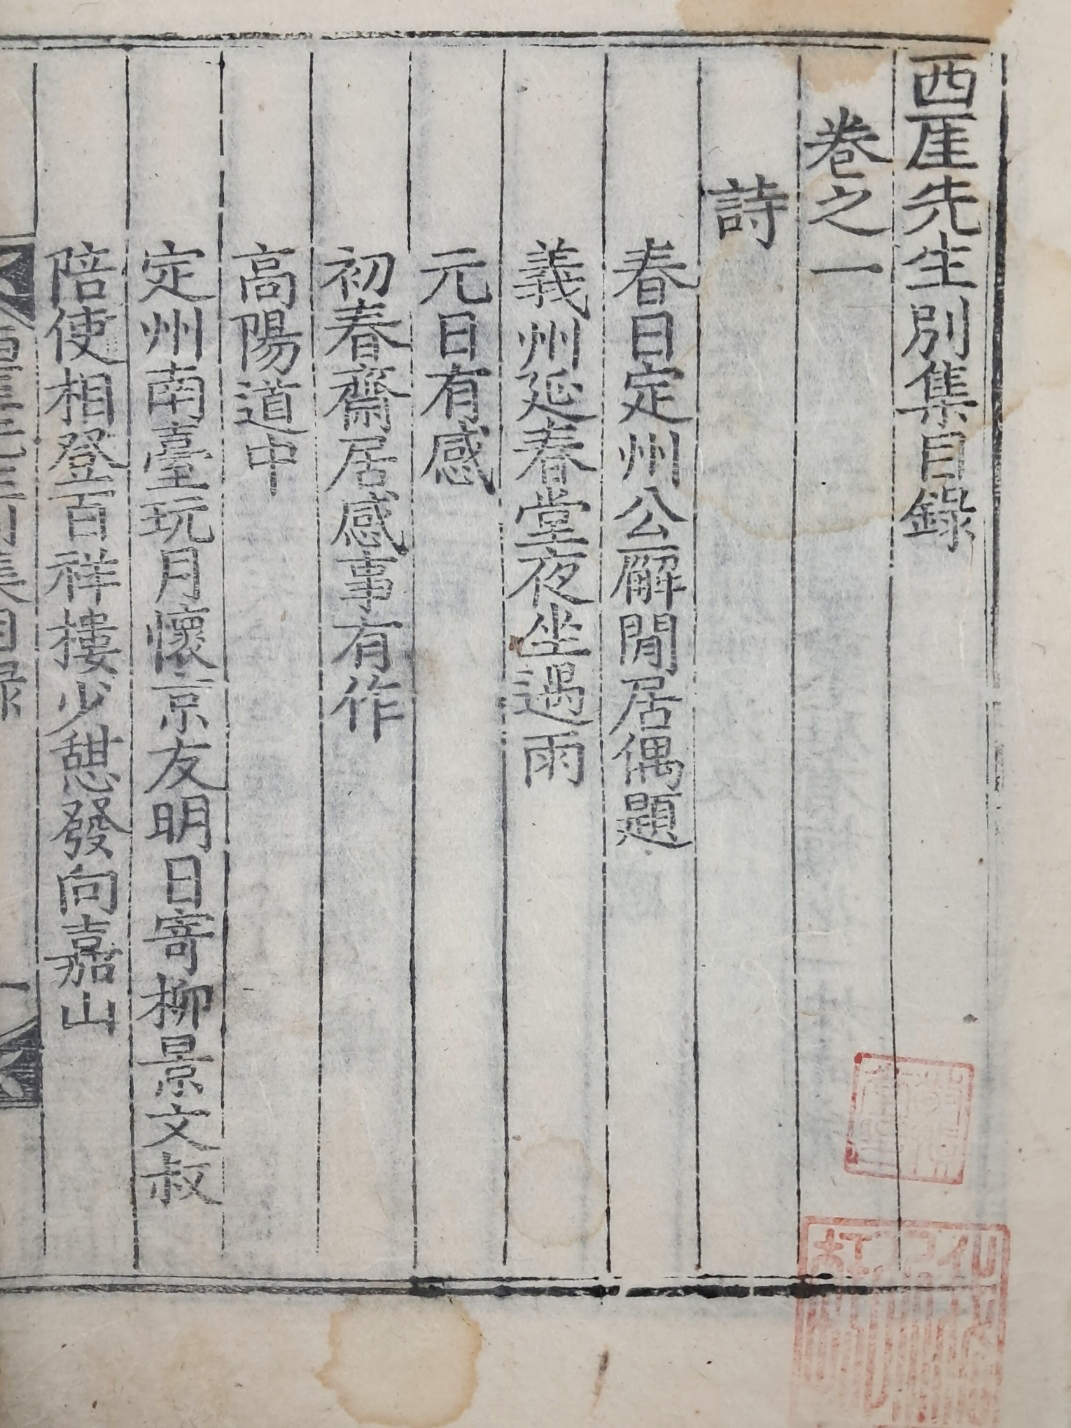 西厓先生別集目錄
卷之一
詩
春日定州公廨閒居偶題
義州延春堂夜坐遇雨
元日有感
初春齋居感事有作
高陽道中
定州南臺玩月懷京友明日寄柳景文叔
陪使相登百祥樓少憇發向嘉山